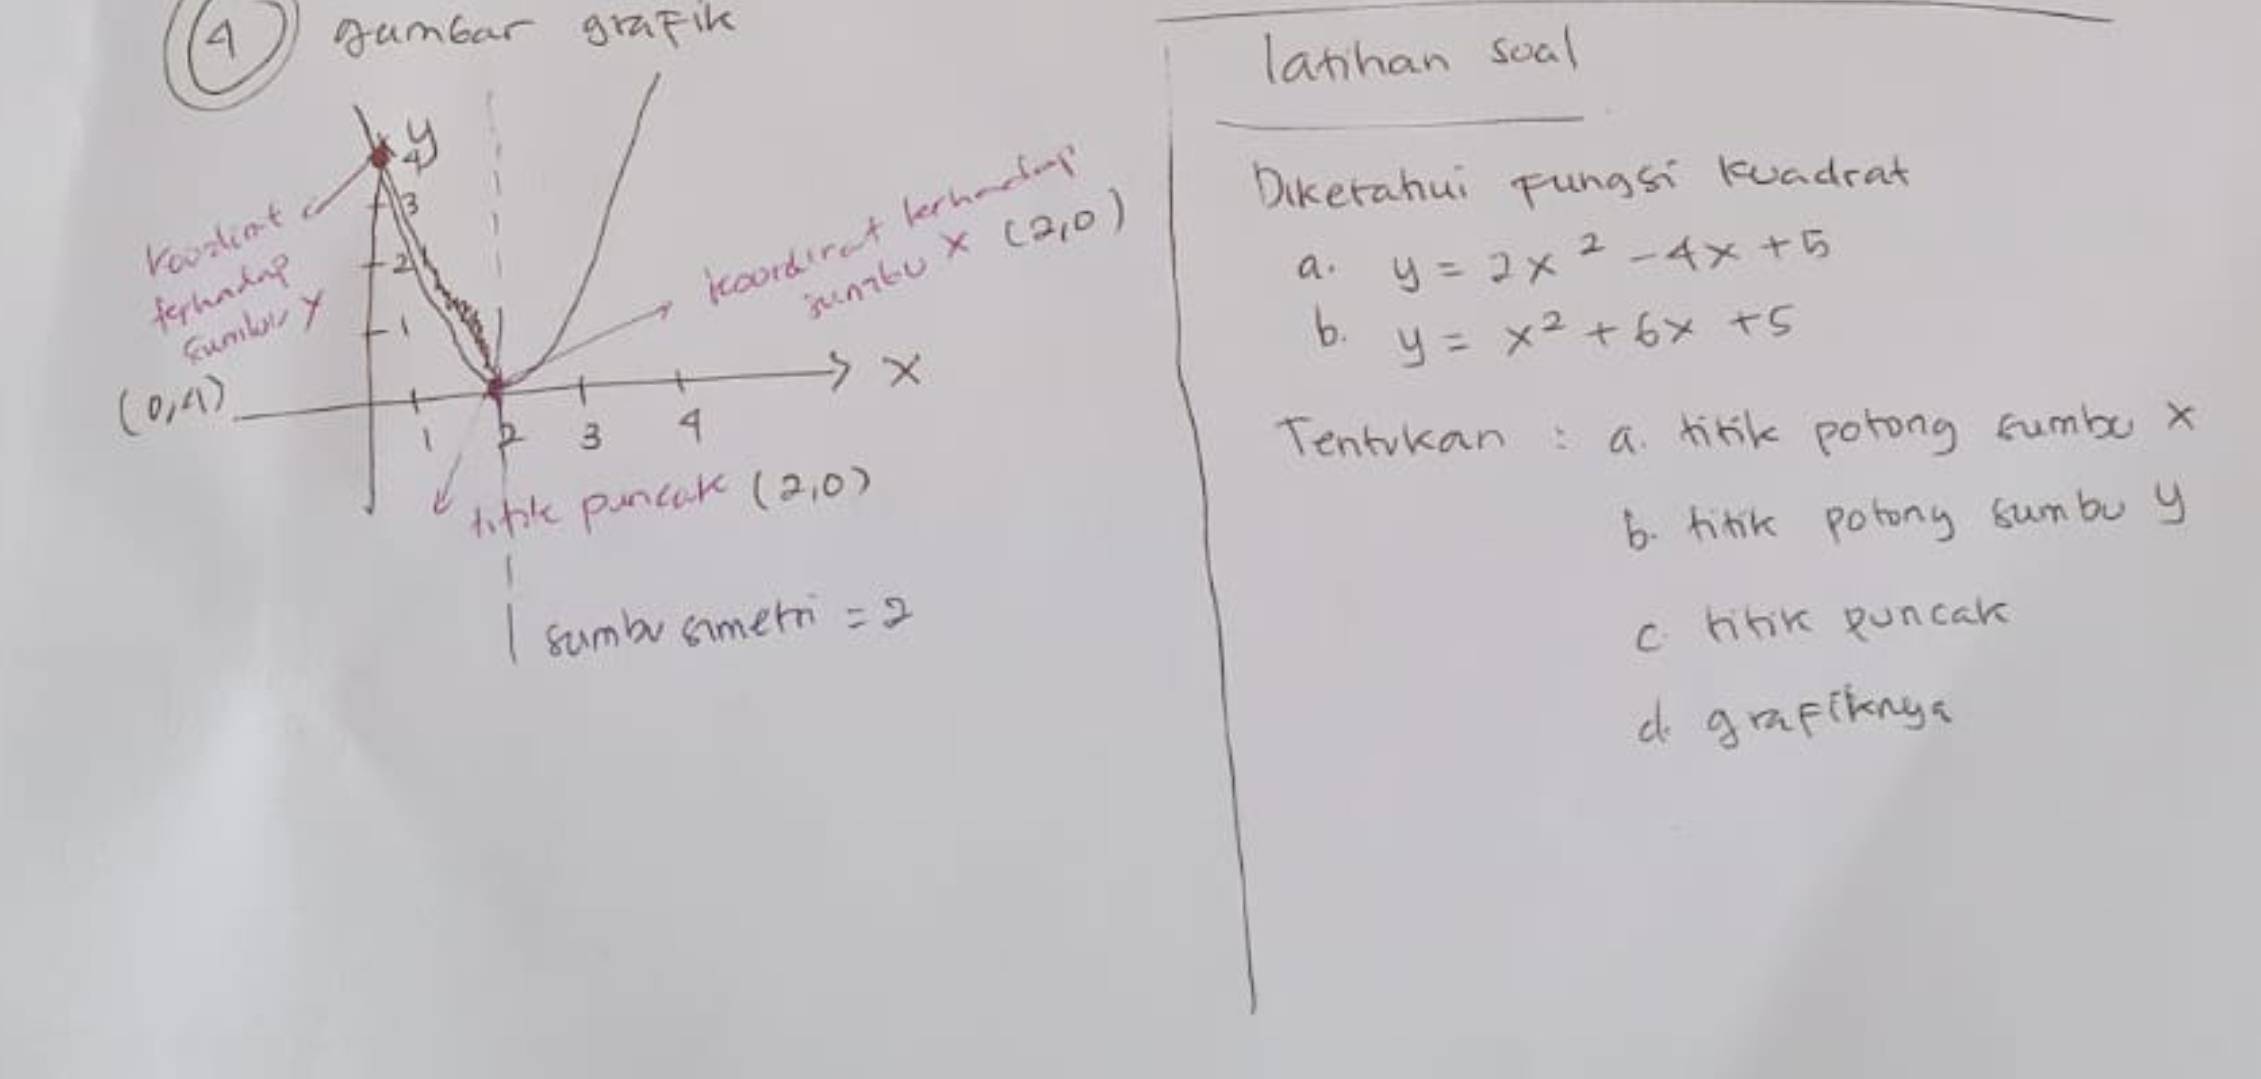 4 gambar grafik
y
4
3
2
1
koordinat
terhadap
sumbu y
(0,4)
koordinat terhadap
sumbu x (2,0)
x
1 2 3 4
titik puncak (2,0)
sumbu simetri = 2
latihan soal
Diketahui fungsi kuadrat
a. y = 2x² - 4x + 5
b. y = x² + 6x + 5
Tentukan : a. titik potong sumbu x
b. titik potong sumbu y
c. titik puncak
d. grafiknya